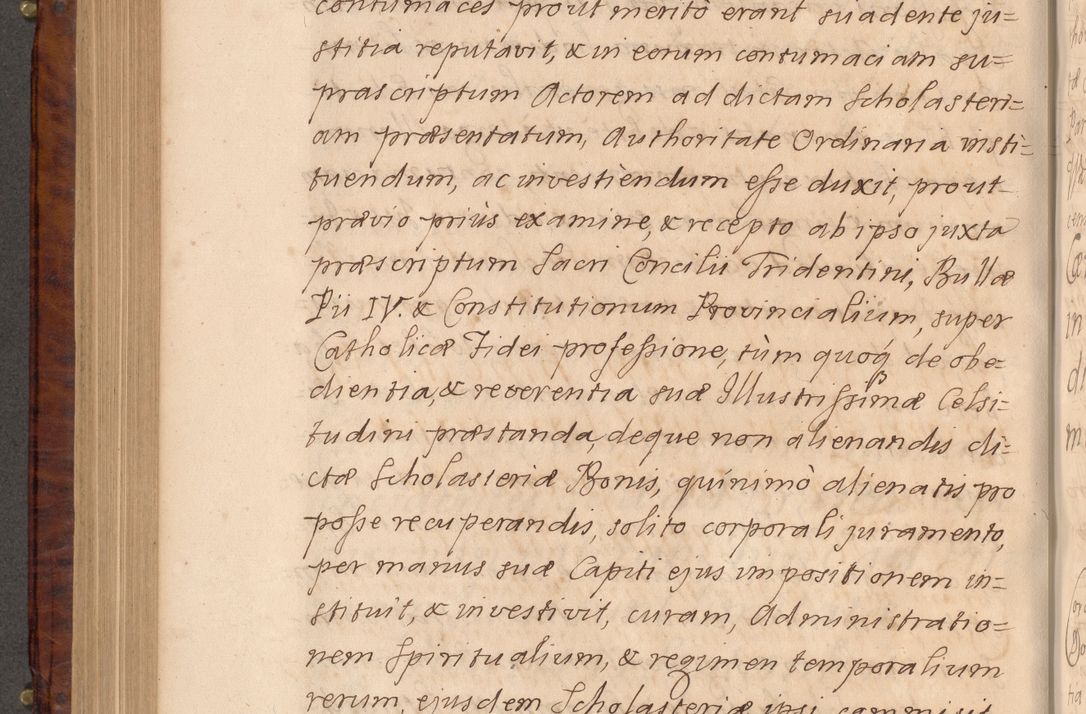 contumaces prout meritò erant suadente ju=
stitia reputavit, & in eorum contumaciam su=
prascriptum Actorem ad dictam Scholasteri=
am præsentatum, Authoritate Ordinaria insti=
tuendum, ac investiendum eſse duxit, prout
prævio priùs examine, & recepto ab ipso juxta
præscriptum Sacri Concilii Tridentini, Bullæ
Pii IV. & Constitutionum Provincialium, super
Catholicæ Fidei profeſsione, tùm quoq́ de obe=
dientia, & reverentia suæ Illustriſsimæ Celsi=
tudini præstanda, deque non alienandis di=
ctæ Scholasteriæ Bonis, quinimò alienatis pro
poſse recuperandis, solito corporali juramento,
per manus suæ Capiti ejus impositionem in=
stituit, & investivit, curam, Administratio=
nem Spiritualium, & regimen temporalium
rerum, ejusdem Scholasteriæ ipsi commisit